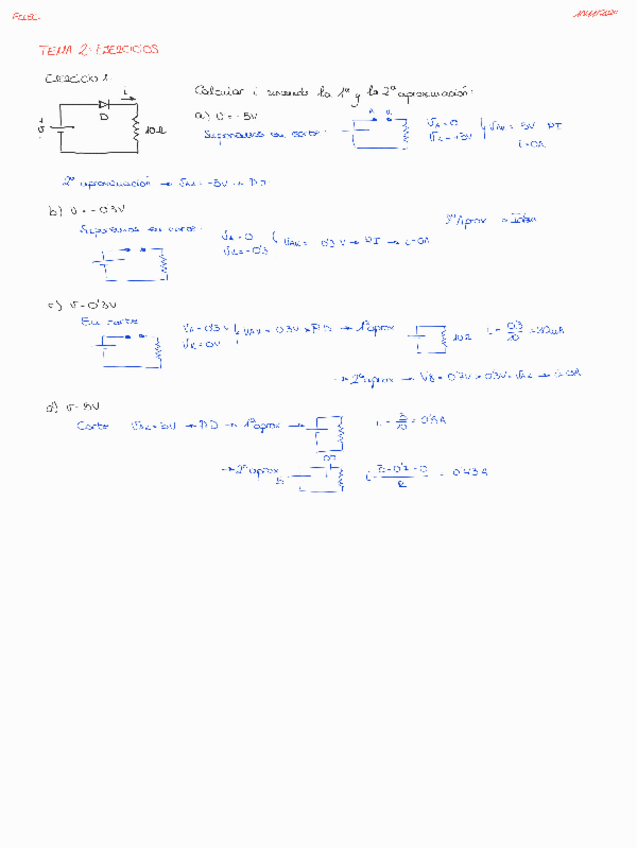 TEMA 2: EJERCICIOS
EJERCICIO 1
Calcular i usando la 1ª y la 2ª aproximación:
i
D
10Ω
a) V = -5V
Suponemos en corte:
VA = 0
i = 0A
2ª aproximación → VAK = -5V → PI
b) V = -0'3V
Suponemos en corte:
VA = 0
VK = -0'3
→ PI → i = 0A
c) V = 0'3V
En corte
VA = 0'3V
VK = 0V
VAK = 0'3V → PD → 1ª aprox
10Ω
→ 2ª aprox → VD = 0'7V > 0'3V = VAK → i = 0A
d) V = 5V
Corte VAK = 5V → PD → 1ª aprox →
i = 5/10 = 0'5A
→ 2ª aprox
0'7
i = (5-0'7-0)/R = 0'43A